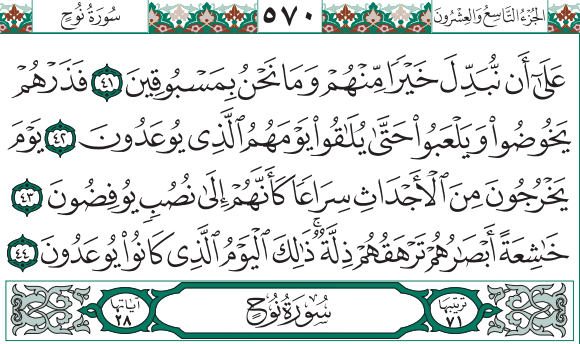 الجُزْءُ التَّاسِعُ وَالعِشْرُونَ ٥٧٠ سُورَةُ نُوحٍ
عَلَىٰٓ أَن نُّبَدِّلَ خَيْرًا مِّنْهُمْ وَمَا نَحْنُ بِمَسْبُوقِينَ ٤١ فَذَرْهُمْ
يَخُوضُوا۟ وَيَلْعَبُوا۟ حَتَّىٰ يُلَٰقُوا۟ يَوْمَهُمُ ٱلَّذِى يُوعَدُونَ ٤٢ يَوْمَ
يَخْرُجُونَ مِنَ ٱلْأَجْدَاثِ سِرَاعًا كَأَنَّهُمْ إِلَىٰ نُصُبٍ يُوفِضُونَ ٤٣
خَٰشِعَةً أَبْصَٰرُهُمْ تَرْهَقُهُمْ ذِلَّةٌ ۚ ذَٰلِكَ ٱلْيَوْمُ ٱلَّذِى كَانُوا۟ يُوعَدُونَ ٤٤
ترتيبها ٧١ سُورَةُ نُوحٍ آياتها ٢٨